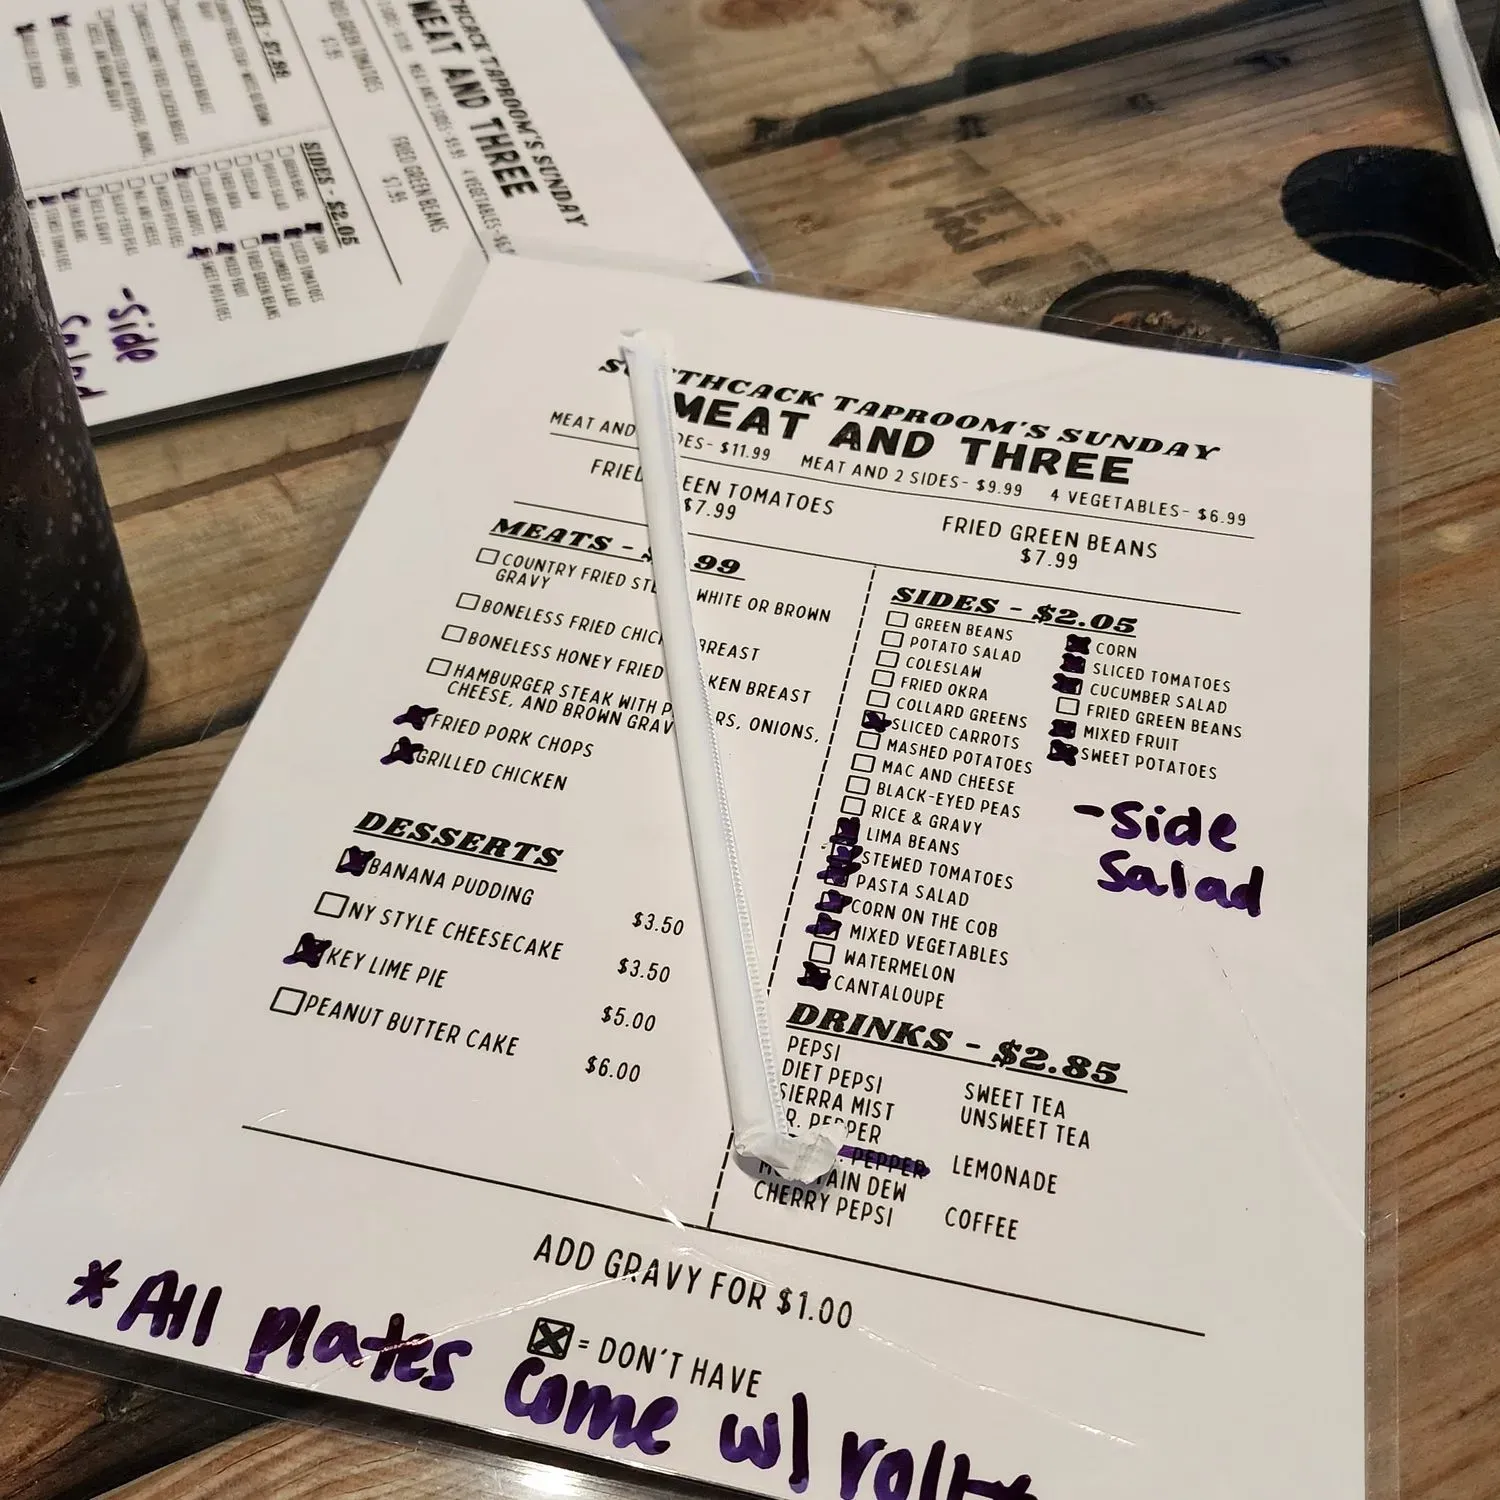 TAPROOM'S SUNDAY
MEAT AND THREE
MEAT AND - $11.99 MEAT AND 2 SIDES- $9.99 4 VEGETABLES- $6.99
FRIED TOMATOES
$7.99
FRIED GREEN BEANS
$7.99
MEATS - 99
COUNTRY FRIED WHITE OR BROWN
GRAVY
BONELESS FRIED BREAST
BONELESS HONEY FRIED BREAST
HAMBURGER STEAK WITH ONIONS,
CHEESE, AND BROWN
FRIED PORK CHOPS
GRILLED CHICKEN
DESSERTS
BANANA PUDDING $3.50
NY STYLE CHEESECAKE $3.50
KEY LIME PIE $5.00
PEANUT BUTTER CAKE $6.00
SIDES - $2.05
GREEN BEANS
POTATO SALAD
COLESLAW
FRIED OKRA
COLLARD GREENS
SLICED CARROTS
MASHED POTATOES
MAC AND CHEESE
BLACK-EYED PEAS
RICE & GRAVY
LIMA BEANS
STEWED TOMATOES
PASTA SALAD
CORN ON THE COB
MIXED VEGETABLES
WATERMELON
CANTALOUPE
CORN
SLICED TOMATOES
CUCUMBER SALAD
FRIED GREEN BEANS
MIXED FRUIT
SWEET POTATOES
-Side
Salad
DRINKS - $2.85
PEPSI
DIET PEPSI
SIERRA MIST
PEPPER
PEPPER
DEW
CHERRY PEPSI
SWEET TEA
UNSWEET TEA
LEMONADE
COFFEE
ADD GRAVY FOR $1.00
= DON'T HAVE
*All plates come w/
TAPROOM'S SUNDAY
MEAT AND THREE
FRIED GREEN BEANS
$7.99
SIDES - $2.05
-Side